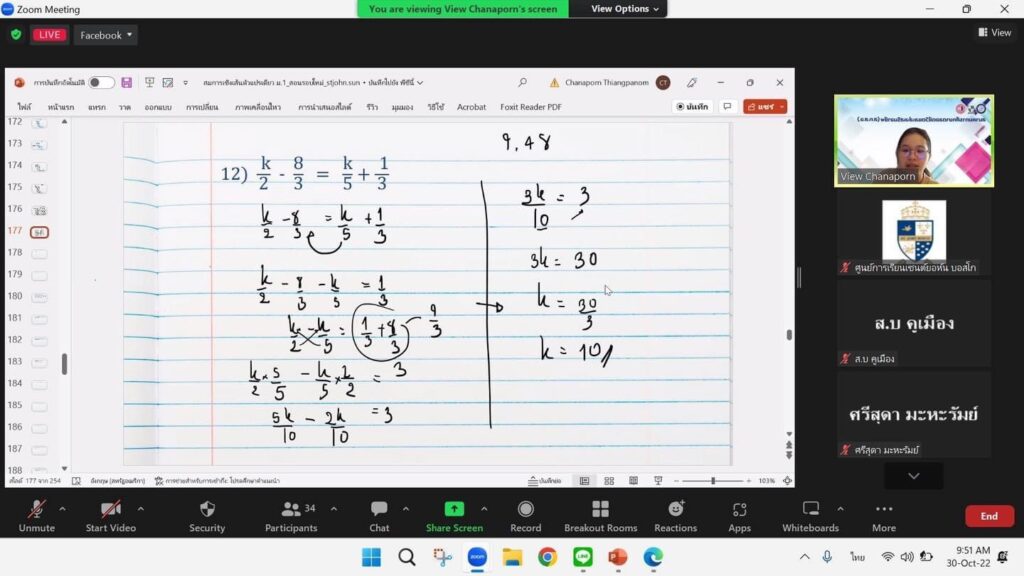 Zoom Meeting
You are viewing View Chanaporn's screen
View Options
LIVE
Facebook
View
การบันทึกอัตโนมัติ
สมการเชิงเส้นตัวแปรเดียว ม.1_สอนรอบใหม่_stjohn.sun • บันทึกไปยัง พีซีนี้
Chanaporn Thiangpanom
CT
ไฟล์ หน้าแรก แทรก วาด ออกแบบ การเปลี่ยน ภาพเคลื่อนไหว การนำเสนอสไลด์ รีวิว มุมมอง วิธีใช้ Acrobat Foxit Reader PDF
บันทึก
แชร์
172
173
174
175
176
177
178
179
180
181
182
183
184
185
186
187
188
9,48
12) k/2 - 8/3 = k/5 + 1/3
k/2 - 8/3 = k/5 + 1/3
k/2 - 8/3 - k/5 = 1/3
k/2 - k/5 = 1/3 + 8/3
9/3
k/2 × 5/5 - k/5 × 2/2 = 3
5k/10 - 2k/10 = 3
3k/10 = 3
3k = 30
k = 30/3
k = 10
สไลด์ 177 จาก 254
อังกฤษ (สหรัฐอเมริกา)
การช่วยสำหรับการเข้าถึง: โปรดศึกษาคำแนะนำ
บันทึกย่อ
103%
View Chanaporn
ศูนย์การเรียนเซนต์ยอห์น บอสโก
ส.บ คูเมือง
ส.บ คูเมือง
ศรีสุดา มะหะรัมย์
ศรีสุดา มะหะรัมย์
Unmute
Start Video
Security
34
Participants
Chat
Share Screen
Record
Breakout Rooms
Reactions
Apps
Whiteboards
More
End
ไทย
9:51 AM
30-Oct-22